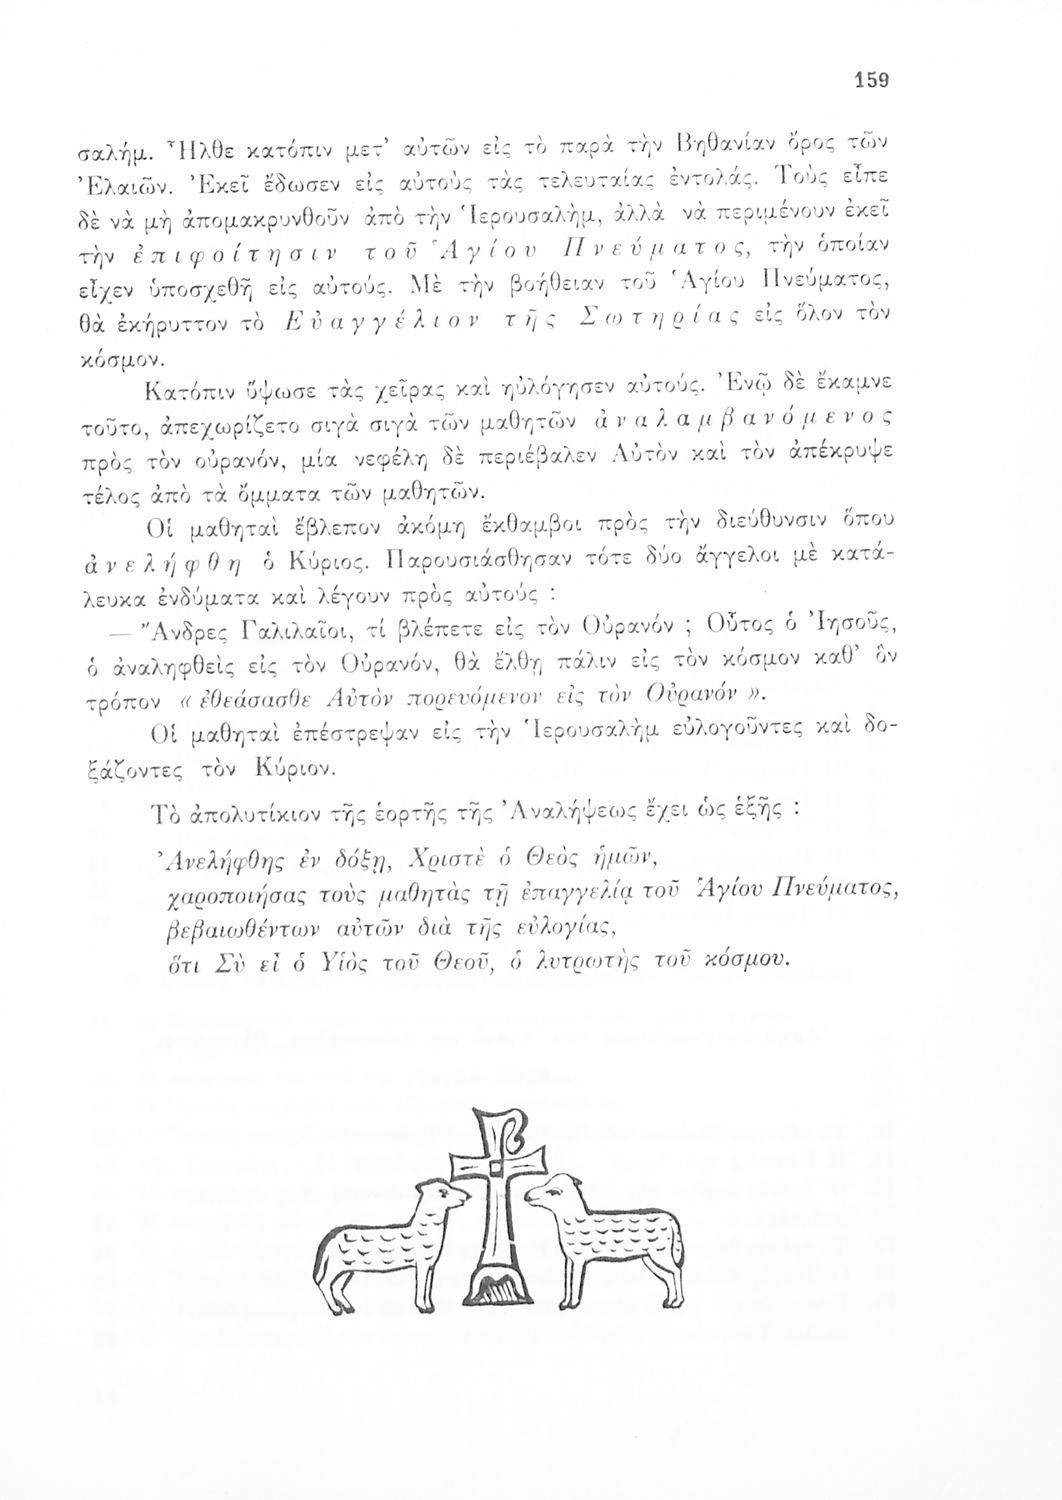 159
σαλήμ. Ἦλθε κατόπιν μετ’ αὐτῶν εἰς τὸ παρὰ τὴν Βηθανίαν ὄρος τῶν
Ἐλαιῶν. Ἐκεῖ ἔδωσεν εἰς αὐτοὺς τὰς τελευταίας ἐντολάς. Τοὺς εἶπε
δὲ νὰ μὴ ἀπομακρυνθοῦν ἀπὸ τὴν Ἱερουσαλὴμ, ἀλλὰ νὰ περιμένουν ἐκεῖ
τὴν ἐπιφοίτησιν τοῦ Ἁγίου Πνεύματος, τὴν ὁποίαν
εἶχεν ὑποσχεθῆ εἰς αὐτούς. Μὲ τὴν βοήθειαν τοῦ Ἁγίου Πνεύματος,
θὰ ἐκήρυττον τὸ Εὐαγγέλιον τῆς Σωτηρίας εἰς ὅλον τὸν
κόσμον.
Κατόπιν ὕψωσε τὰς χεῖρας καὶ ηὐλόγησεν αὐτούς. Ἐνῷ δὲ ἔκαμνε
τοῦτο, ἀπεχωρίζετο σιγὰ σιγὰ τῶν μαθητῶν ἀναλαμβανόμενος
πρὸς τὸν οὐρανόν, μία νεφέλη δὲ περιέβαλεν Αὐτὸν καὶ τὸν ἀπέκρυψε
τέλος ἀπὸ τὰ ὄμματα τῶν μαθητῶν.
Οἱ μαθηταὶ ἔβλεπον ἀκόμη ἔκθαμβοι πρὸς τὴν διεύθυνσιν ὅπου
ἀνελήφθη ὁ Κύριος. Παρουσιάσθησαν τότε δύο ἄγγελοι μὲ κατά-
λευκα ἐνδύματα καὶ λέγουν πρὸς αὐτούς :
— Ἄνδρες Γαλιλαῖοι, τί βλέπετε εἰς τὸν Οὐρανόν ; Οὗτος ὁ Ἰησοῦς,
ὁ ἀναληφθεὶς εἰς τὸν Οὐρανόν, θὰ ἔλθῃ πάλιν εἰς τὸν κόσμον καθ’ ὃν
τρόπον « ἐθεάσασθε Αὐτὸν πορευόμενον εἰς τὸν Οὐρανόν ».
Οἱ μαθηταὶ ἐπέστρεψαν εἰς τὴν Ἱερουσαλὴμ εὐλογοῦντες καὶ δο-
ξάζοντες τὸν Κύριον.
Τὸ ἀπολυτίκιον τῆς ἑορτῆς τῆς Ἀναλήψεως ἔχει ὡς ἑξῆς :
Ἀνελήφθης ἐν δόξῃ, Χριστὲ ὁ Θεὸς ἡμῶν,
χαροποιήσας τοὺς μαθητὰς τῇ ἐπαγγελίᾳ τοῦ Ἁγίου Πνεύματος,
βεβαιωθέντων αὐτῶν διὰ τῆς εὐλογίας,
ὅτι Σὺ εἶ ὁ Υἱὸς τοῦ Θεοῦ, ὁ λυτρωτὴς τοῦ κόσμου.